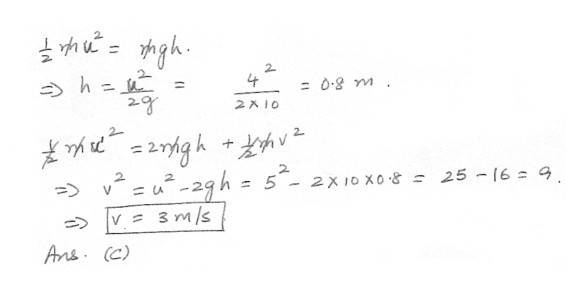 ½ mu² = mgh.
⇒ h = u²/2g = 4²/2×10 = 0.8 m.
½ mu² = 2mgh + ½mv²
⇒ v² = u² - 2gh = 5² - 2×10×0.8 = 25 - 16 = 9.
⇒ v = 3 m/s
Ans. (C)